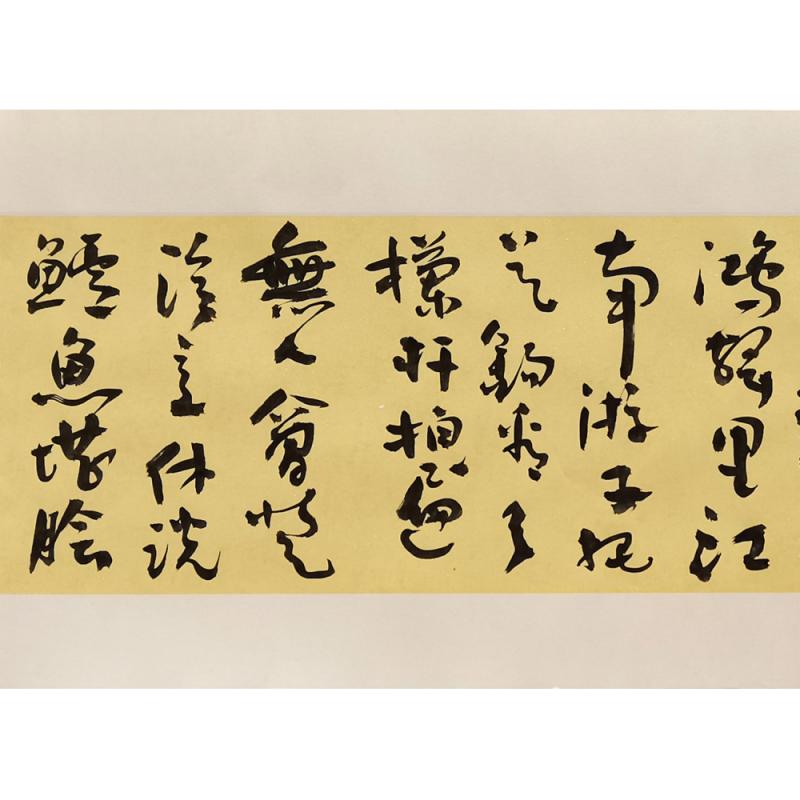 鴻聲里江
南游子把
吳鉤看了
欄杆拍遍
無人會登
臨意休說
鱸魚堪膾